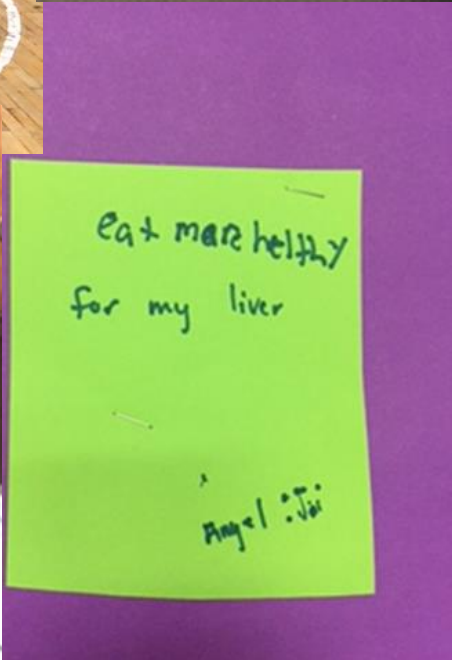 eat more helthy
for my liver
Angel :Jai